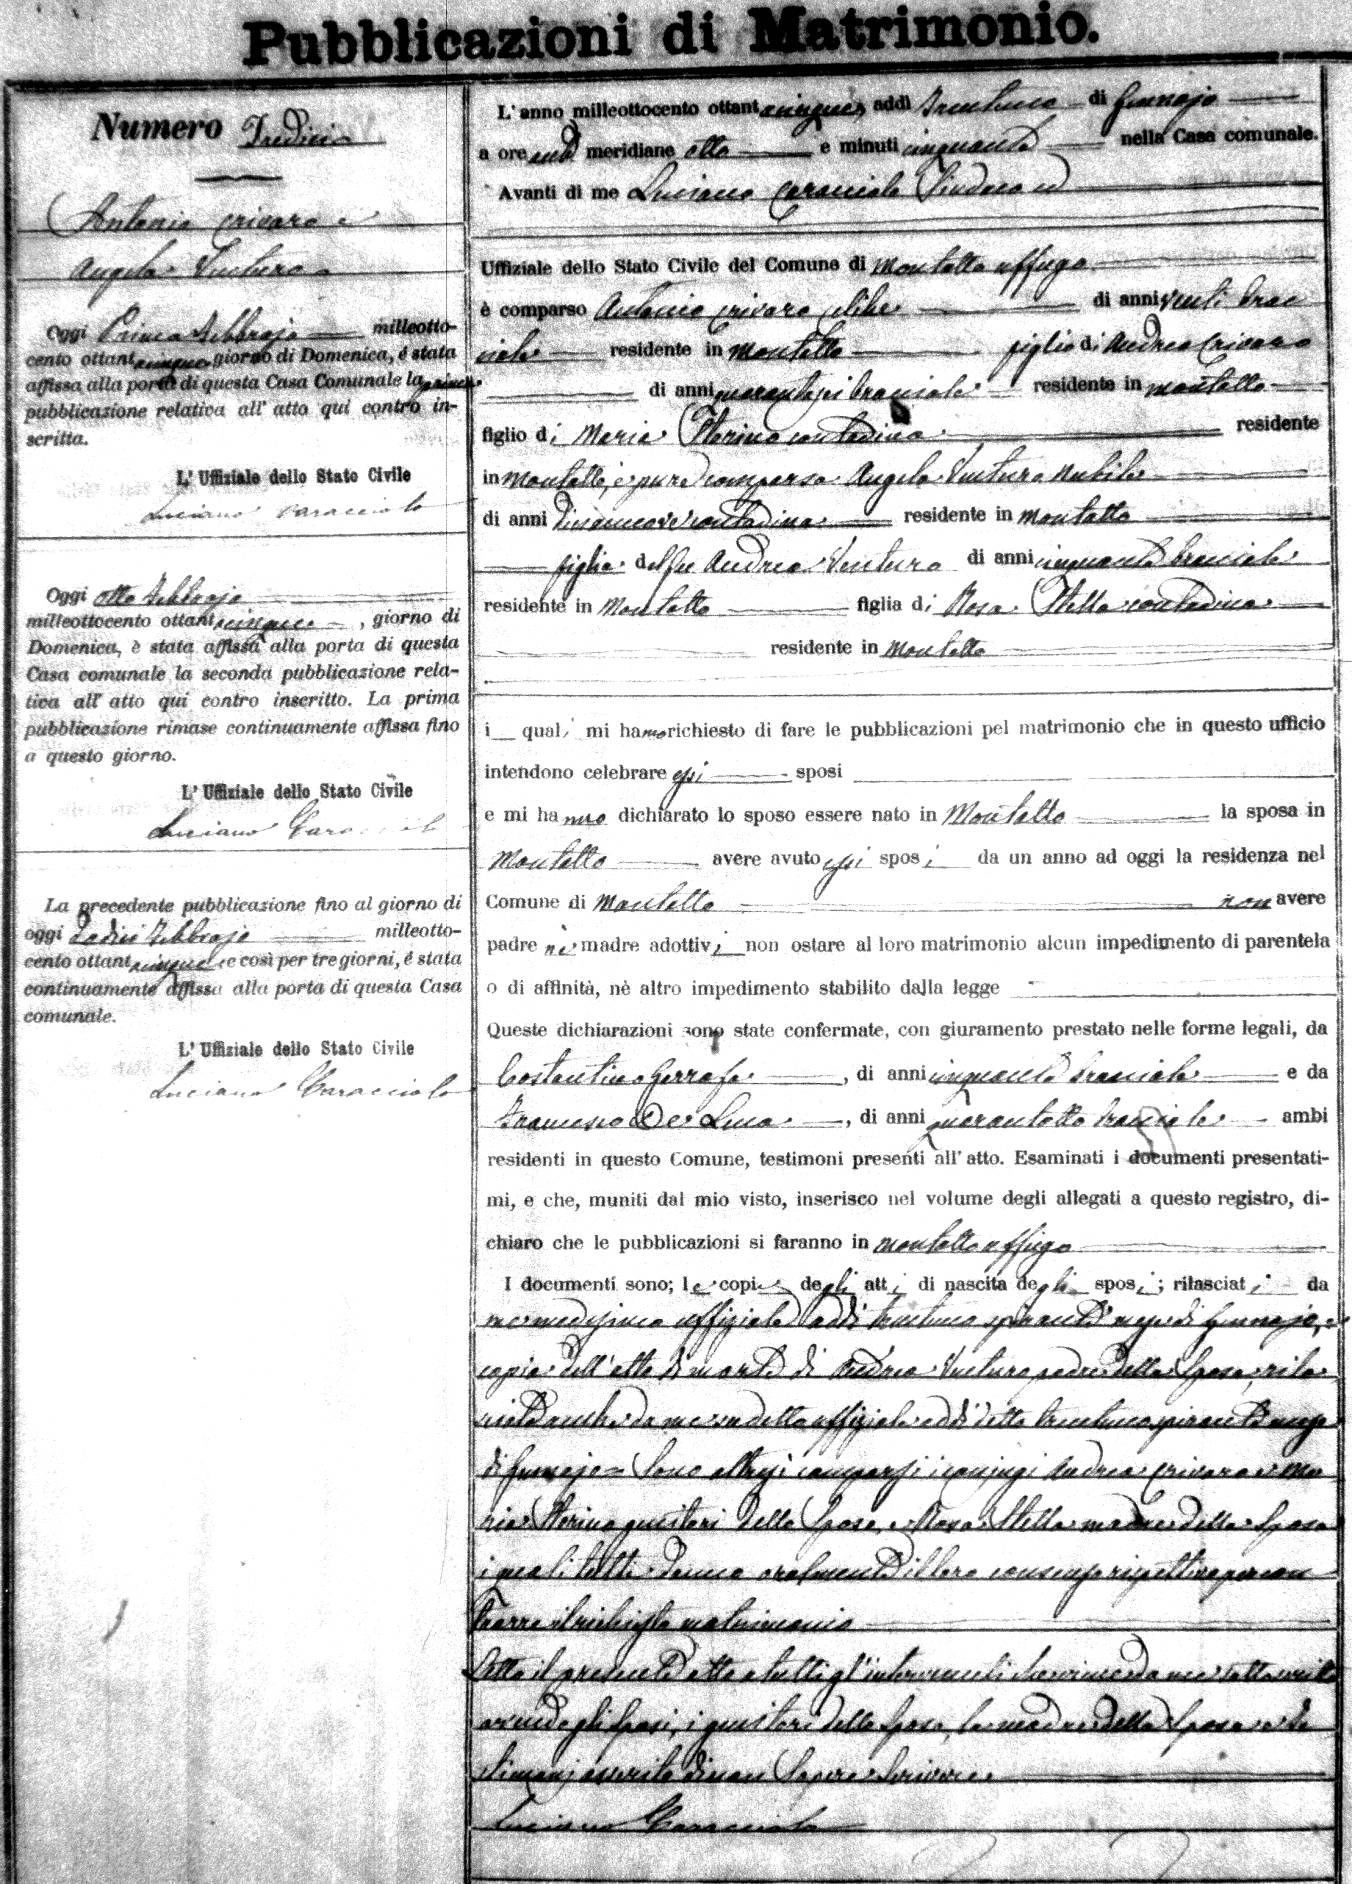 Pubblicazioni di Matrimonio.
Numero Tredici
Antonio Crivaro e
Angela Ventura
Oggi Primo Febbrajo milleotto-
cento ottantacinque giorno di Domenica, è stata
affissa alla porta di questa Casa Comunale la prima
pubblicazione relativa all' atto qui contro in-
scritta.
L' Uffiziale dello Stato Civile
Luciano Caracciolo
Oggi otto Febbrajo
milleottocento ottantacinque, giorno di
Domenica, è stata affissa alla porta di questa
Casa comunale la seconda pubblicazione rela-
tiva all' atto qui contro inscritto. La prima
pubblicazione rimase continuamente affissa fino
a questo giorno.
L' Uffiziale dello Stato Civile
Luciano Caracciolo
La precedente pubblicazione fino al giorno di
oggi dodici Febbrajo milleotto-
cento ottantacinque e così per tre giorni, è stata
continuamente affissa alla porta di questa Casa
comunale.
L' Uffiziale dello Stato Civile
Luciano Caracciolo
L' anno milleottocento ottantacinque, addì trentuno di Gennajo
a ore anti meridiane otto e minuti cinquanta nella Casa comunale.
Avanti di me Luciano Caracciolo Sindaco ed
Uffiziale dello Stato Civile del Comune di Montalto Uffugo
è comparso Antonio Crivaro celibe di anni venti brac
ciale residente in Montalto figlio di Andrea Crivaro
di anni quarantasei bracciale residente in Montalto
figlio di Maria Sterino contadina residente
in Montalto, è pure comparsa Angela Ventura nubile
di anni diciannove contadina residente in Montalto
figlia del fu Andrea Ventura di anni cinquanta bracciale
residente in Montalto figlia di Rosa Stella contadina
residente in Montalto
i quali mi hanno richiesto di fare le pubblicazioni pel matrimonio che in questo ufficio
intendono celebrare essi sposi
e mi hanno dichiarato lo sposo essere nato in Montalto la sposa in
Montalto avere avuto essi sposi da un anno ad oggi la residenza nel
Comune di Montalto non avere
padre nè madre adottivi non ostare al loro matrimonio alcun impedimento di parentela
o di affinità, nè altro impedimento stabilito dalla legge
Queste dichiarazioni sono state confermate, con giuramento prestato nelle forme legali, da
Costantino Garrafa, di anni cinquanta bracciale e da
Francesco De Luca, di anni quarantotto bracciale ambi
residenti in questo Comune, testimoni presenti all' atto. Esaminati i documenti presentati-
mi, e che, muniti dal mio visto, inserisco nel volume degli allegati a questo registro, di-
chiaro che le pubblicazioni si faranno in Montalto Uffugo
I documenti sono; le copie degli atti di nascita degli sposi; rilasciati da
me medesimo uffiziale addì trentuno spirante mese di Gennajo, e
copia dell'atto di morte di Andrea Ventura padre della Sposa, rila
sciata anche da me suddetto uffiziale addì detto trentuno spirante mese
di Gennajo = Sono altresì comparsi i conjugi Andrea Crivaro e Ma
ria Sterino genitori dello Sposo, e Rosa Stella madre della Sposa
i quali tutti danno oralmente il loro consenso rispettivo per con
trarre il richiesto matrimonio
Letto il presente atto a tutti gl'intervenuti si è firmato da me sottoscritto
avendo gli Sposi, i genitori dello Sposo, la madre della Sposa e i te
stimonj asserito di non Sapere Scrivere
Luciano Caracciolo